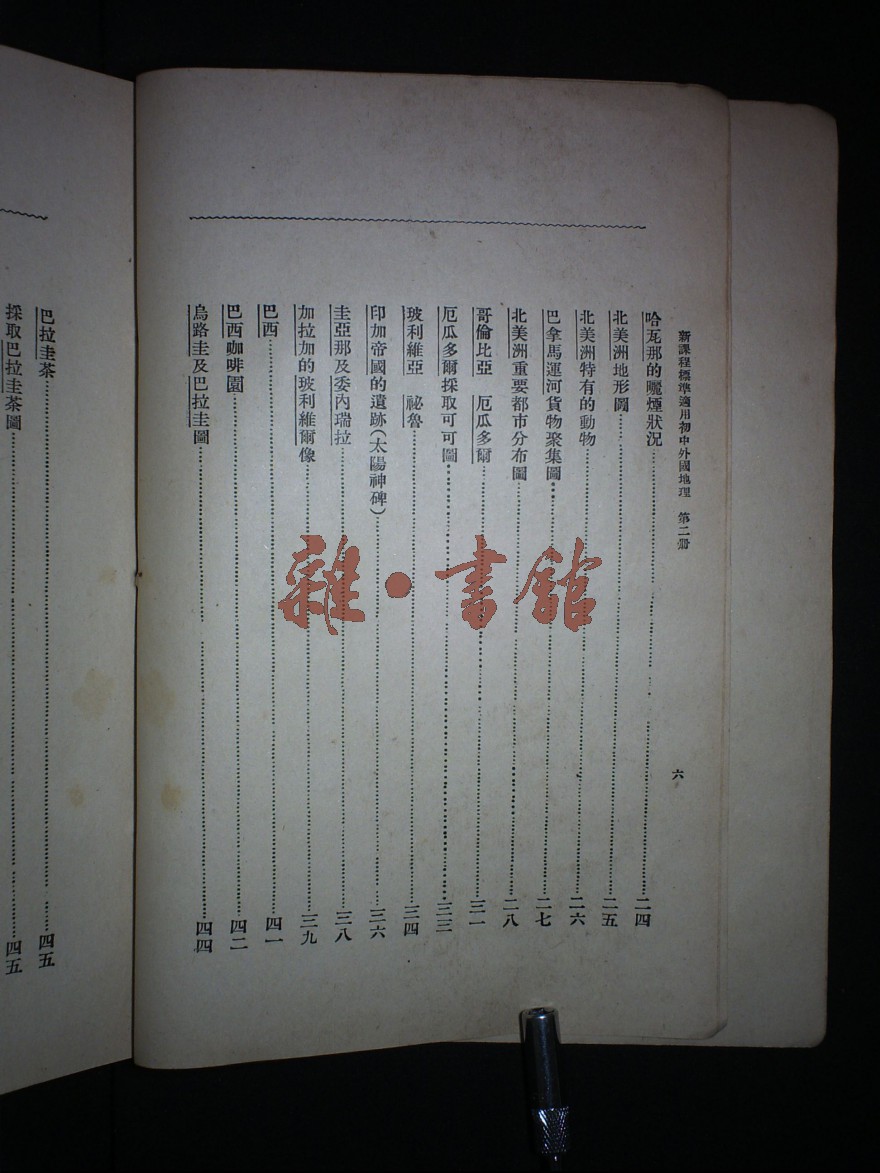 新課程標準適用初中外國地理　第二冊
六
哈瓦那的曬煙狀況……二四
北美洲地形圖……二五
北美洲特有的動物……二六
巴拿馬運河貨物聚集圖……二七
北美洲重要都市分布圖……二八
哥倫比亞　厄瓜多爾……三一
厄瓜多爾採取可可圖……三三
玻利維亞　祕魯……三四
印加帝國的遺跡(太陽神碑)……三六
圭亞那及委內瑞拉……三八
加拉加的玻利維爾像……三九
巴西……四一
巴西咖啡園……四二
烏路圭及巴拉圭圖……四四
巴拉圭茶……四五
採取巴拉圭茶圖……四五
雜·書館